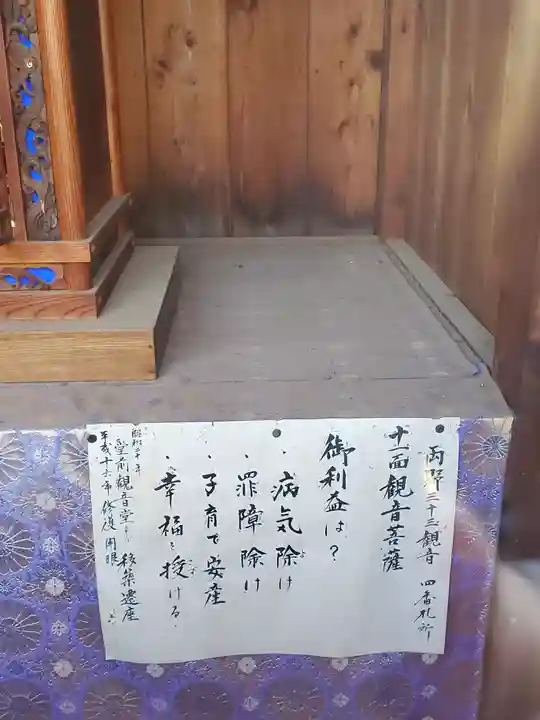 両野三十三観音 四番札所
十一面観音菩薩
御利益は?
・病気除け
よ
・罪障除け
・子育て安産
・幸福を授ける。
さず
昭和三十年
堂前観音堂より移築遷座
平成十六年修復開眼